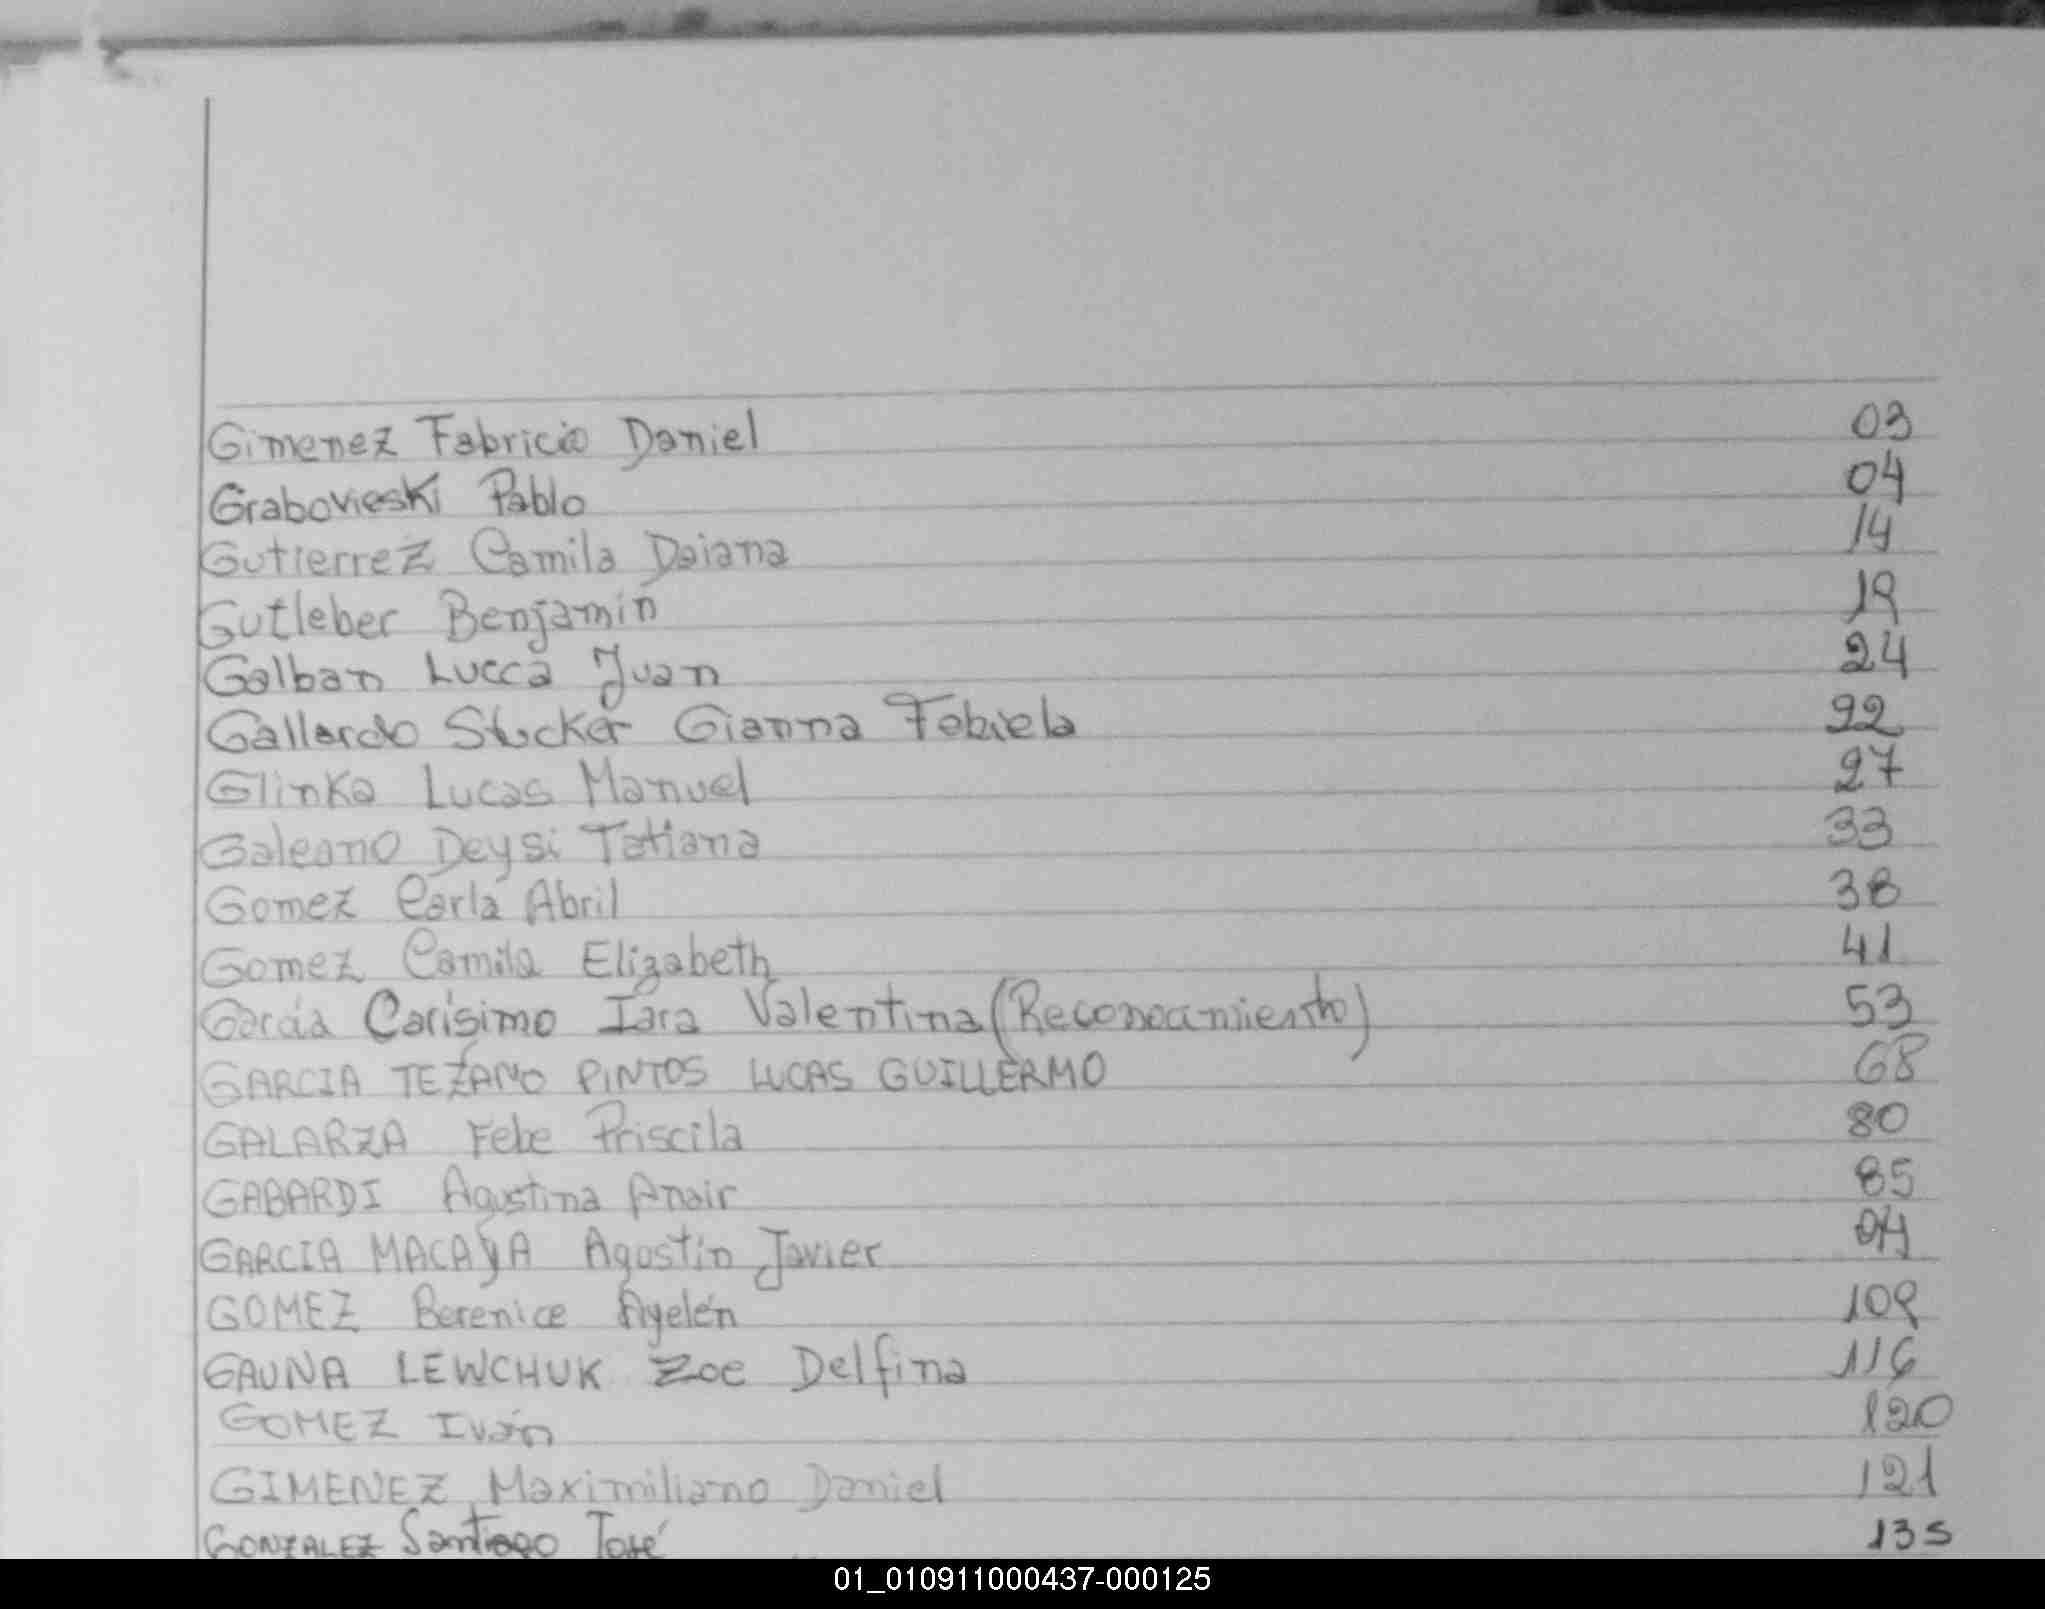 Gimenez Fabricio Daniel 03
Grabovieski Pablo 04
Gutierrez Camila Daiana 14
Gutleber Benjamín 19
Galban Lucca Juan 24
Gallardo Stucker Gianna Fabiela 22
Glinka Lucas Manuel 27
Galeano Deysi Tatiana 33
Gomez Carla Abril 38
Gomez Camila Elizabeth 41
Garcia Carísimo Iara Valentina (Reconocimiento) 53
GARCIA TEZANO PINTOS LUCAS GUILLERMO 68
GALARZA Febe Priscila 80
GABARDI Agustina Anair 85
GARCIA MACAYA Agostín Javier
GOMEZ Berenice Ayelén 109
GAUNA LEWCHUK Zoe Delfina 116
GOMEZ Iván 120
GIMENEZ Maximiliano Daniel 121
GONZALEZ Santiago José 135
01_010911000437-000125